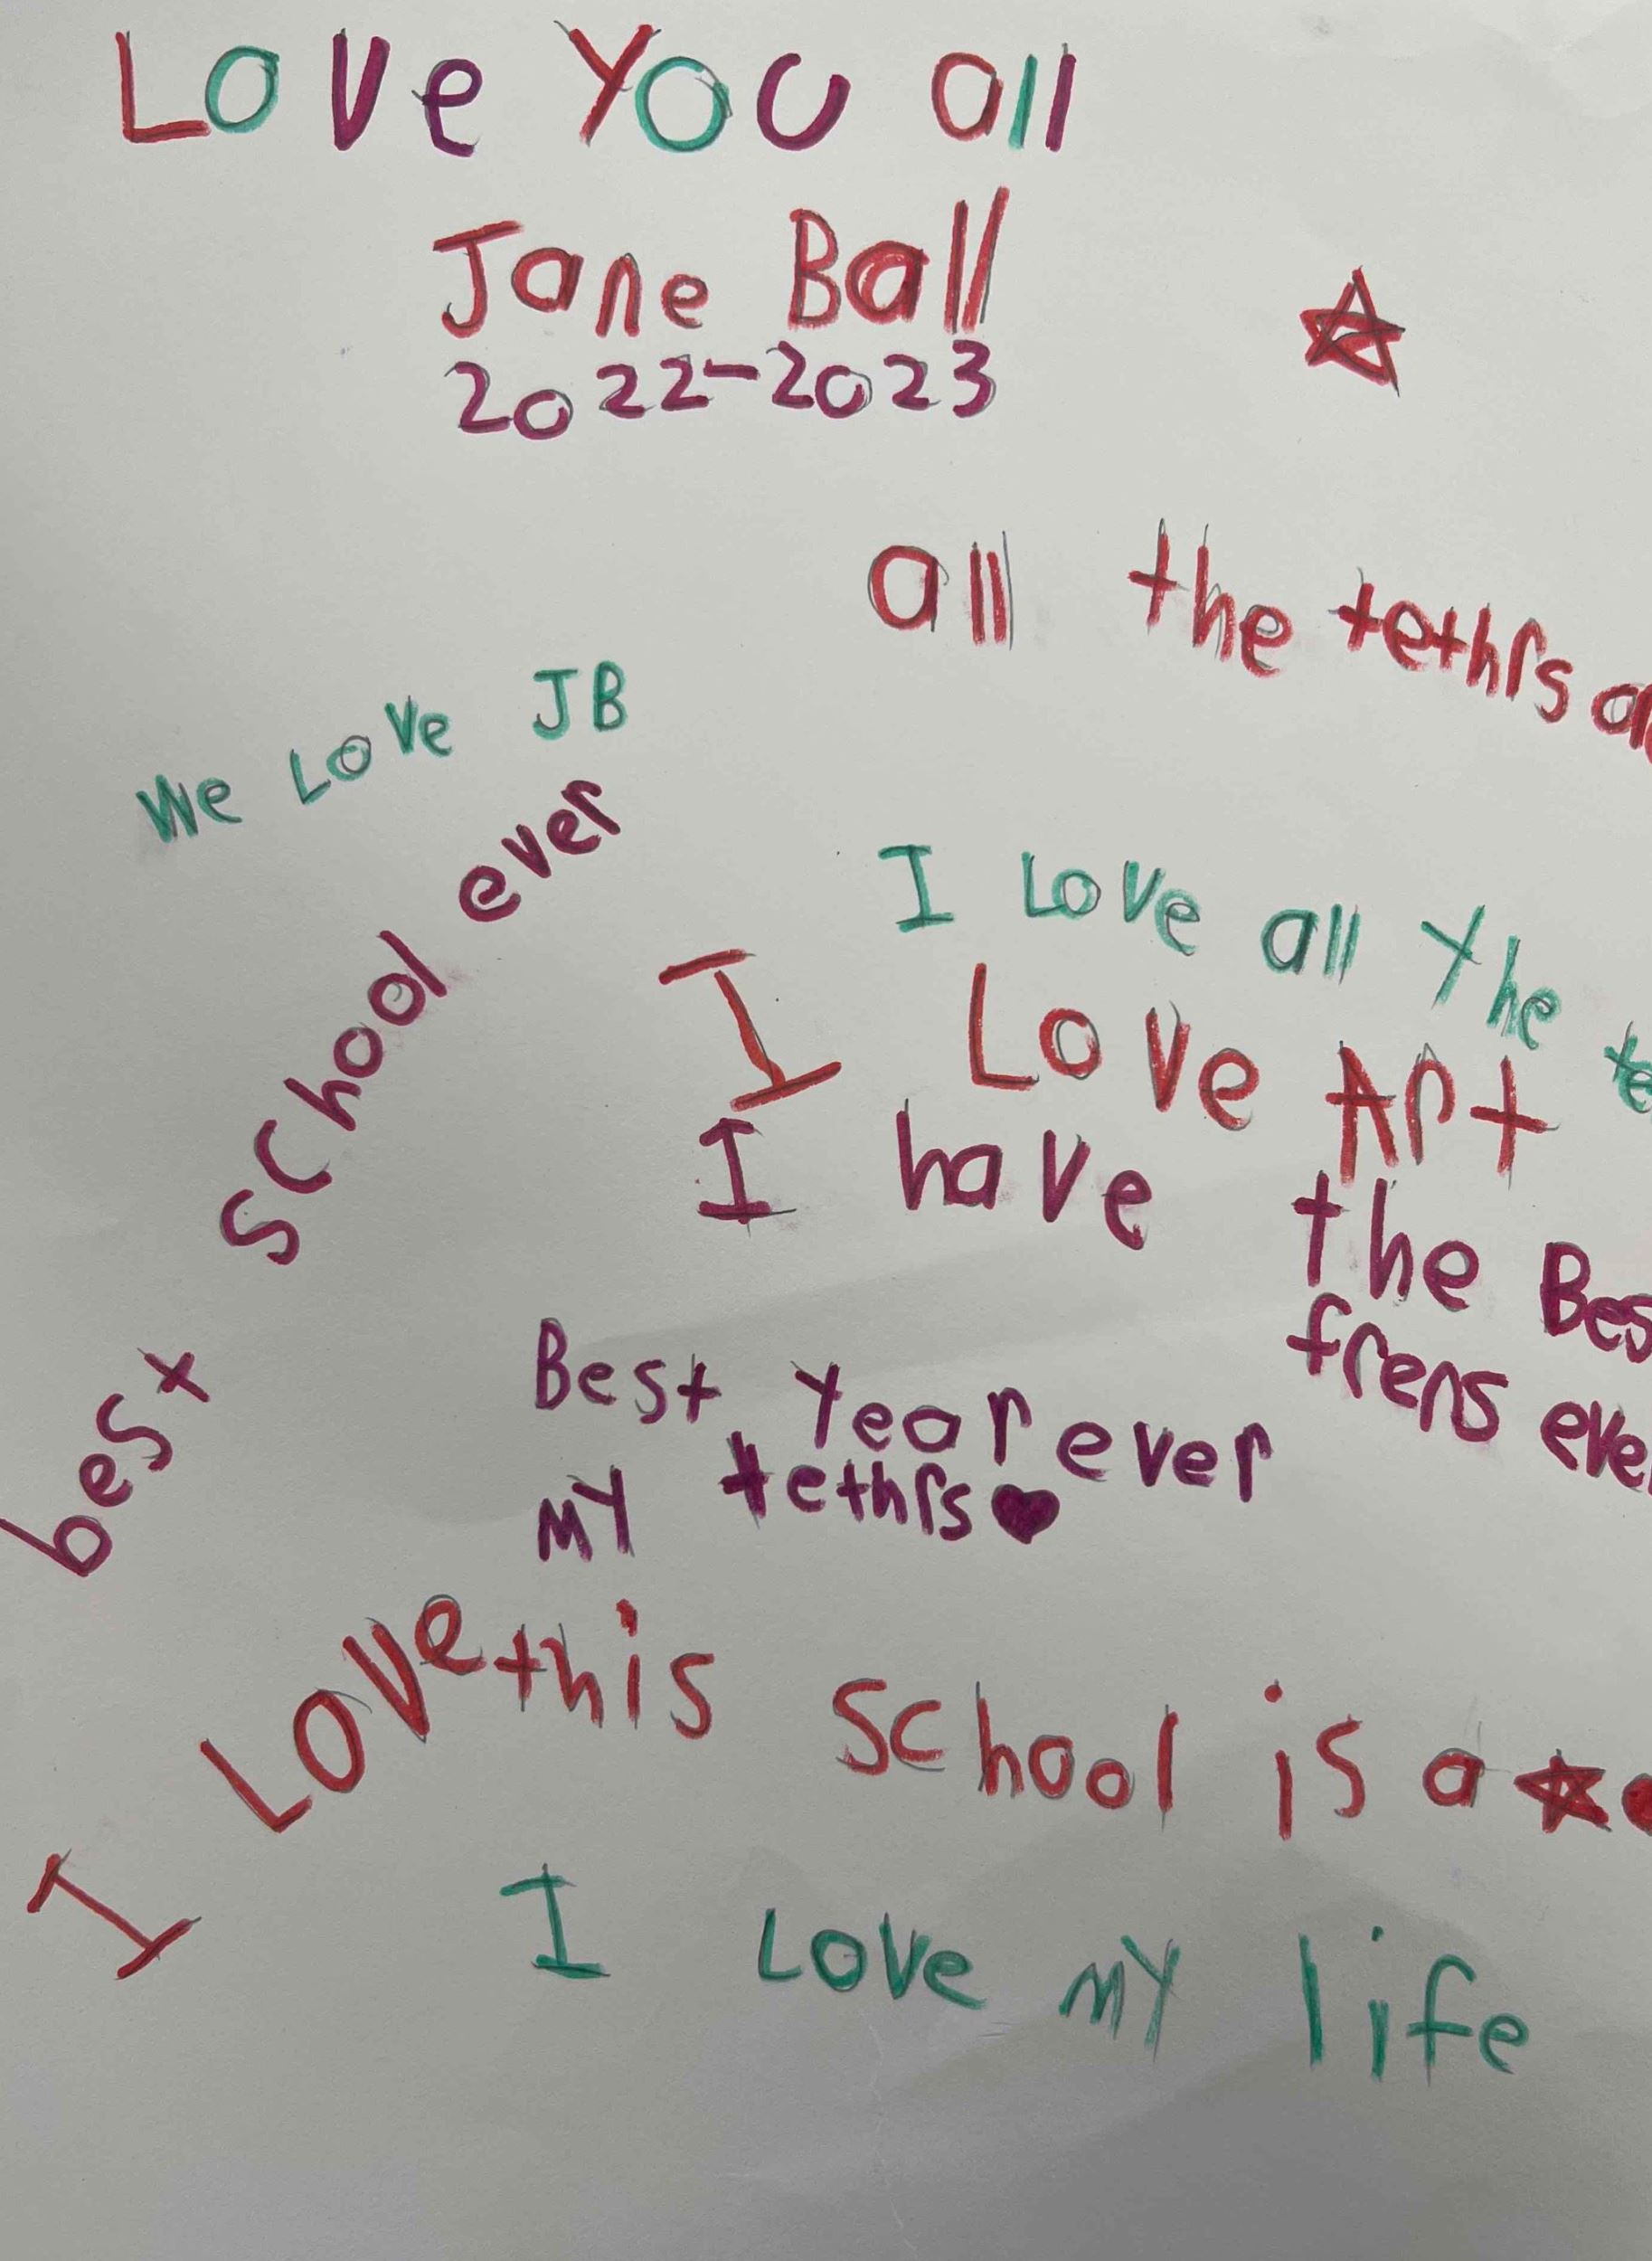 Love You all
Jane Ball
2022-2023
all the tethrs
We Love JB
best school ever
I Love all Yhe
I Love Art
I have the
frens
Best Year ever
my tethrs
I Love this school is a
I Love my life